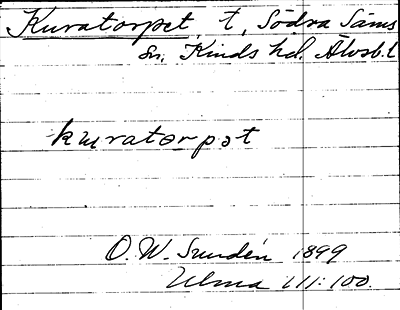 Kuratorpet, t, Södra Säms
sn, Kinds hd. Älvsb. l
kɯratorpət
O. W. Sundén 1899
Ulma 111:100.